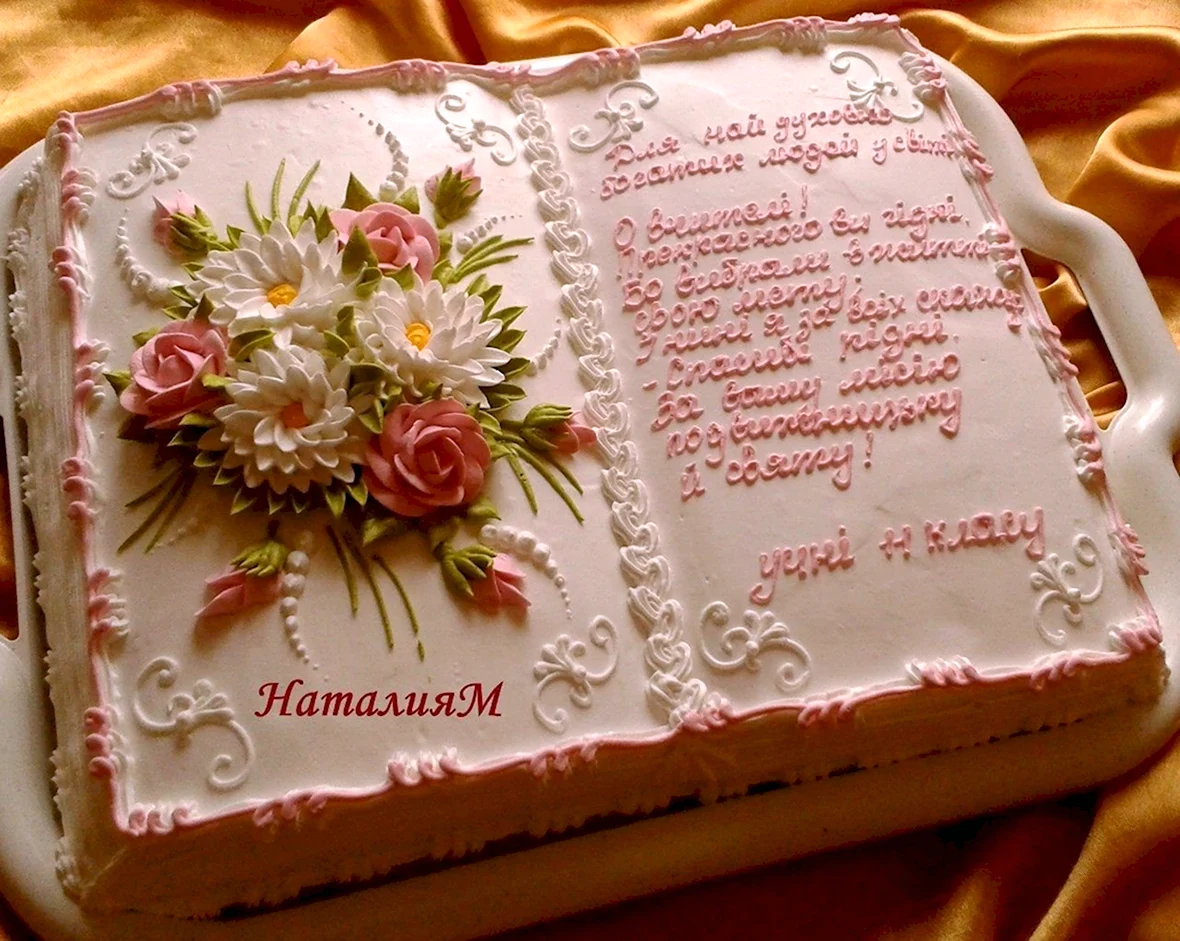 Для най духовно
богатих людей у світі
О вчителі!
Прекрасного ви гідні,
Бо вибрали в житті
свою мету,
Учині я за всіх скажу
- Спасибі рідні,
За вашу місію
подвижницьку
й святу!
учні 11 класу
НаталияМ